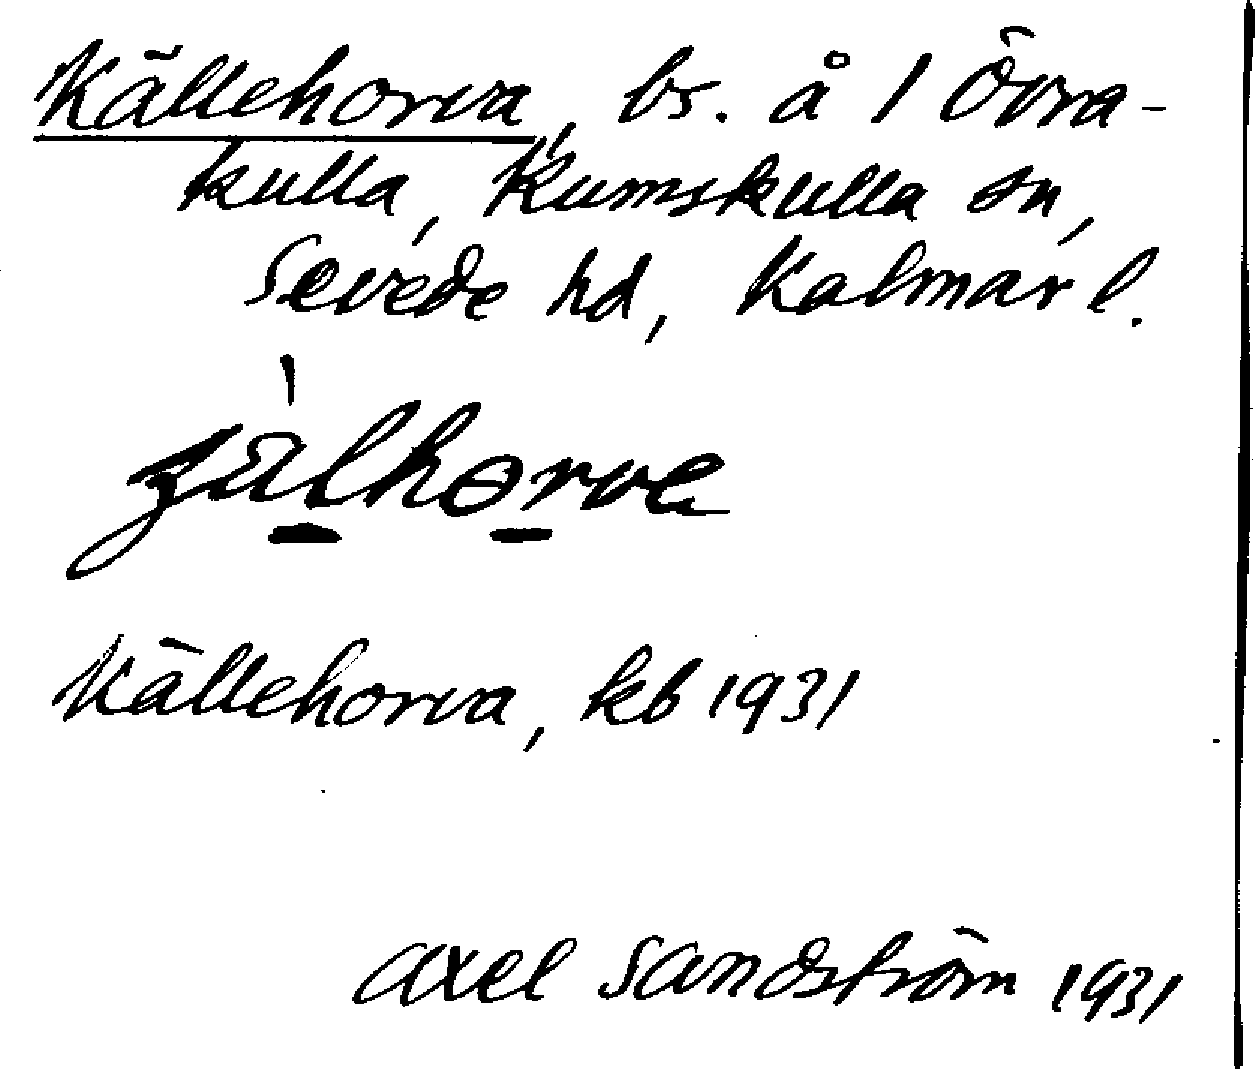 Källehorva, bs. å 1 Övra-
kulla, Rumskulla sn,
Sevede hd, Kalmar l.
Källehorva, kb 1931
Axel Sandström 1931